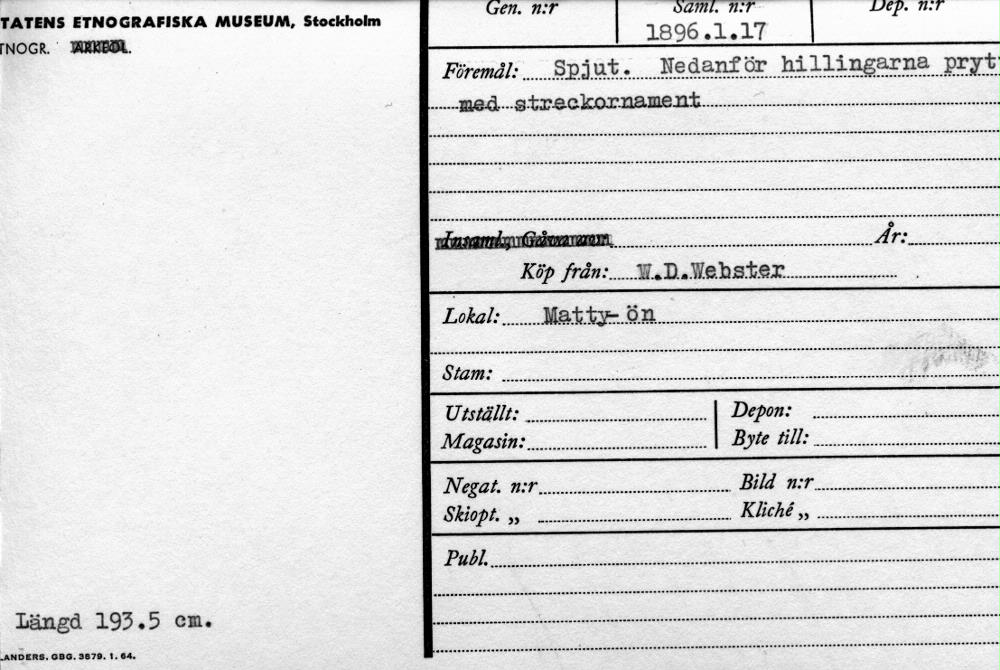 TATENS ETNOGRAFISKA MUSEUM, Stockholm
TNOGR. ARKEOL.
Gen. n:r Saml. n:r Dep. n:r
1896.1.17
Föremål: Spjut. Nedanför hillingarna pryt
med streckornament
Insaml., Gåva av: År:
Köp från: W.D.Webster
Lokal: Matty-ön
Stam:
Utställt: Depon:
Magasin: Byte till:
Negat. n:r Bild n:r
Skiopt. „ Kliché „
Publ.
Längd 193.5 cm.
LANDERS. GBG. 3679. 1. 64.